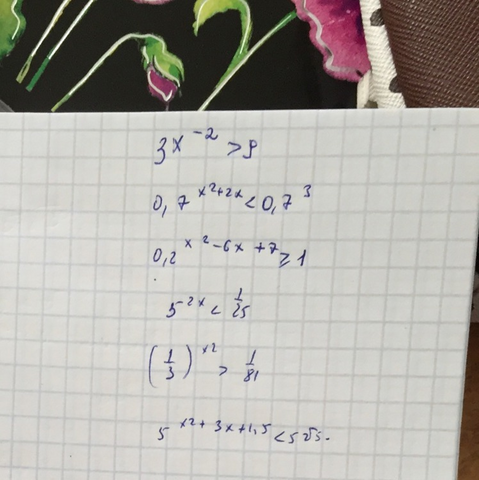 3x⁻² > 9
0,7^(x²+2x) < 0,7³
0,2^(x²-6x+7) ≥ 1
5^(2x) < 1/25
(1/3)^(x²) > 1/81
5^(x²+3x+1,5) < 5√5.